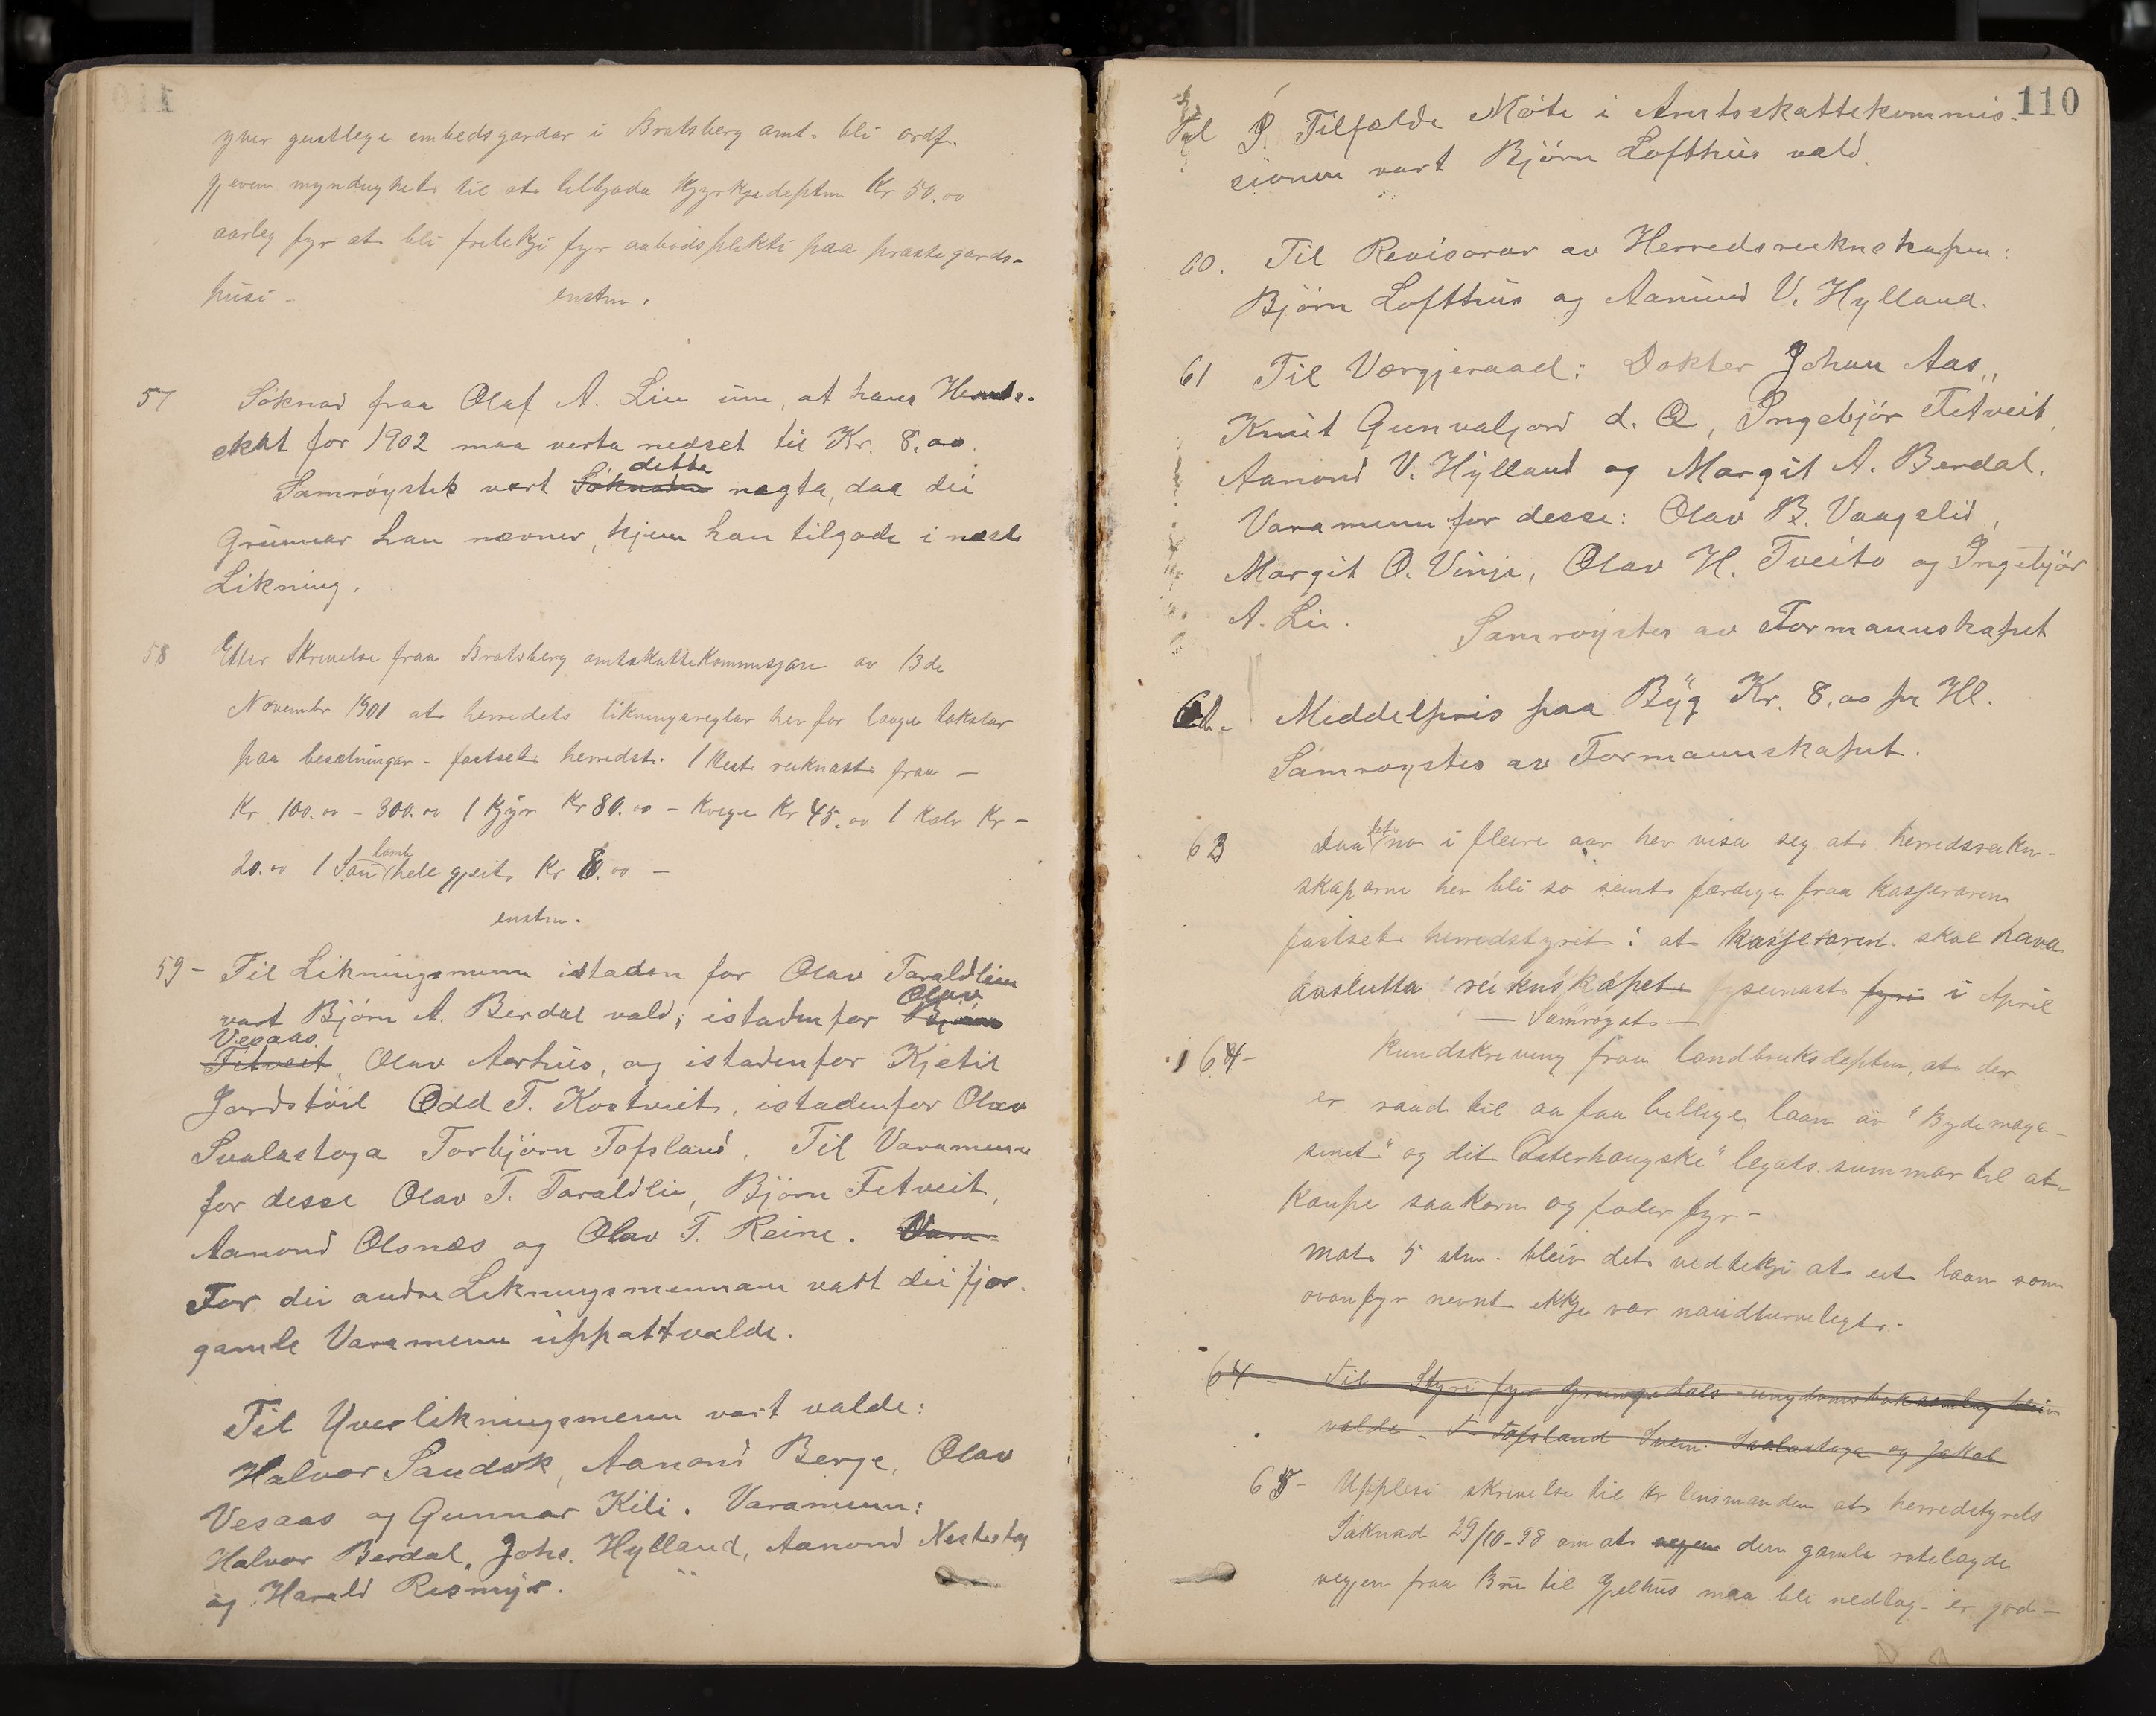 yver geistlege embedsgardar i Bratsberg amt. bli ordf.
gjeven myndughet til at tilbjoda Kyrkjedeptm Kr 50.00
aarleg fyr at bli fritekji fyr aabodsplikti paa prestegards-
husi - enstm.
57 Søknad fraa Olaf A. Lien um, at hans Herads-
skat for 1902 maa verta nedset til Kr. 8.00.
Samrøystek vart Søknaden dette negta, daa dei
Grunnar han nævner, kjem han tilgode i neste
Likning.
58 Etter Skrivelse fraa Bratsberg amtskattekommisjon av 13de
Novembr 1901 at herredets likningsreglar hev for laage takstar
paa besetningar - fastset herredst. 1 Hest reiknast fraa -
Kr 100.00 - 300.00 1 Kyr Kr 80.00 - Kvige Kr 45.00 1 Kalv Kr -
20.00 1 Sau lamb hell gjeit Kr 8.00 -
enstm.
59 - Til Likningsmenn istaden for Olav Taraldlien
vart Bjørn A. Berdal vald; istaden for Bjørn Olav
Fitveit Vesaas, Olav Aarhus, og istaden for Kjetil
Jordstöil Odd T. Kostveit, istadenfor Olav
Svalastoga Torbjørn Tofsland. Til Varamenn
for desse Olav T. Taraldlii, Bjørn Fetveit,
Aanond Olsnæs og Olav T. Reine. Vara-
For dei andre Likningsmennane vart dei fjor-
gamle Varamenn uppattvalde.
Til Yverlikningsmenn vart valde:
Halvor Sandok, Aanond Berge, Olav
Vesaas og Gunnar Kili. Varamenn:
Halvor Berdal, Johs. Hylland, Aanond Nestestog
og Harald Rismyr.
110
Til P. Tilfælde Møte i Amtsskattekommis-
sionen vart Björn Lofthus vald.
60. Til Revisorar av Herredsreiknskapen:
Björn Lofthus og Aamund V. Hylland.
61 Til Vergjeraad: Dokter Johan Aas,
Knut Gunvaljord d. Æ, Ingebjör Fitveit,
Aanond V. Hylland og Margit A. Berdal.
Varamenn for desse: Olav B. Vaagslid,
Margit O. Vinje, Olav H. Tveito og Ingebjör
A. Lii. Samrøystes av Formannskapet
62. Middelpris paa Byg Kr. 8,00 pr Hl.
Samrøystes av Formannskapet.
63 Daa det no i fleire aar hev visa seg at herredsreikn-
skaparne hev bli so seint færdige fraa Kasseraren
fastset herredstyrit: at kasseraren skal hava
avslutta reiknskapet fyseinast fyri i April
- Samrøysts -
64 - Rundskriveng fraa landbruksdeptm, at der
er raad til aa faa billige laan av "Bydemaga-
sinet" og dit "Østerhaugske" legats summar til at
kaupe saakorn og foder fyr -
Mot 5 stm. bleiv det vedtekji at eit laan som
ovanfyr nevnt ikkje var naudturvelegt.
64 - Til Styri fyr Grungedals ungdomsboksamlag bleiv
valde - T. Tofsland Svein Svalastoga og Jakob
65 - Upplesi skrivelse til hr lensmanden at herredstyrets
Søknad 29/10-98 om at vegjen den gamle rotelagde
vegjen fraa Bru til Gjelhus maa bli nedlag - er god -